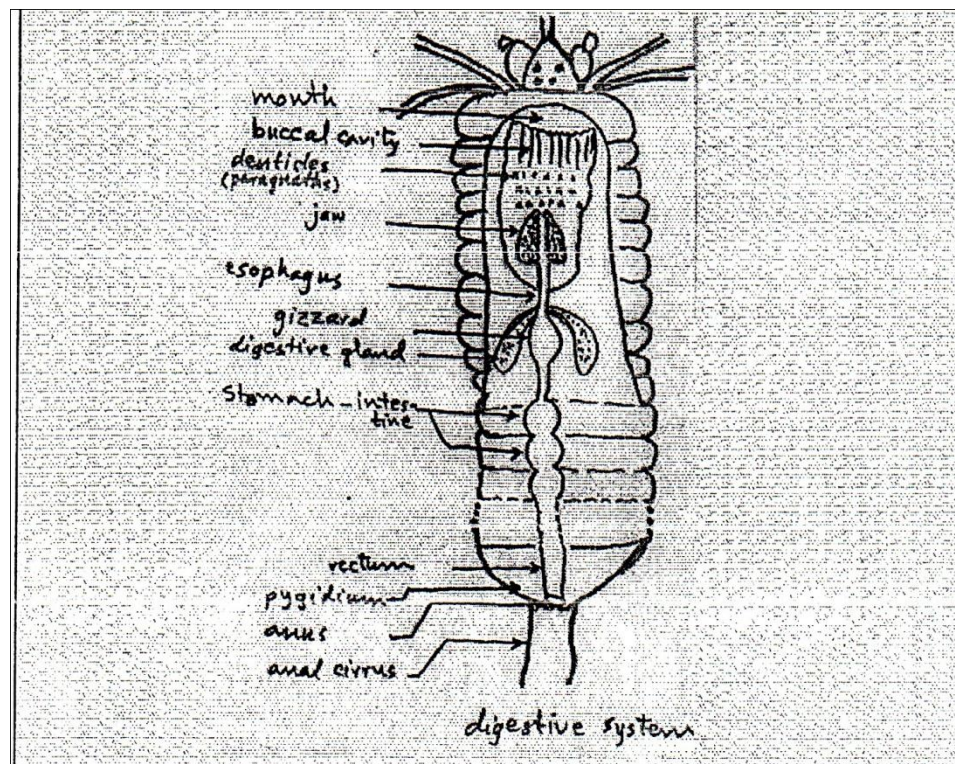 mouth
buccal cavity
denticles
(paragnaths)
jaw
esophagus
gizzard
digestive gland
stomach-intes-
tine
rectum
pygidium
anus
anal cirrus
digestive system